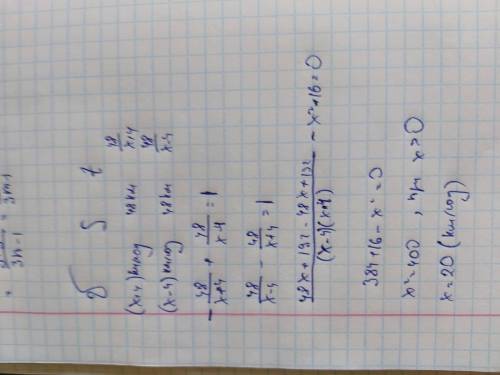 3m-1
3m-1
v S t
(x+4) км/год 48 км 48/(x+4)
(x-4) км/год 48 км 48/(x-4)
- 48/(x+4) + 48/(x-4) = 1
48/(x-4) - 48/(x+4) = 1
(48x+192-48x+192)/((x-4)(x+4)) - x²+16=0
384+16-x²=0
x²=400 , при x>0
x=20 (км/год)